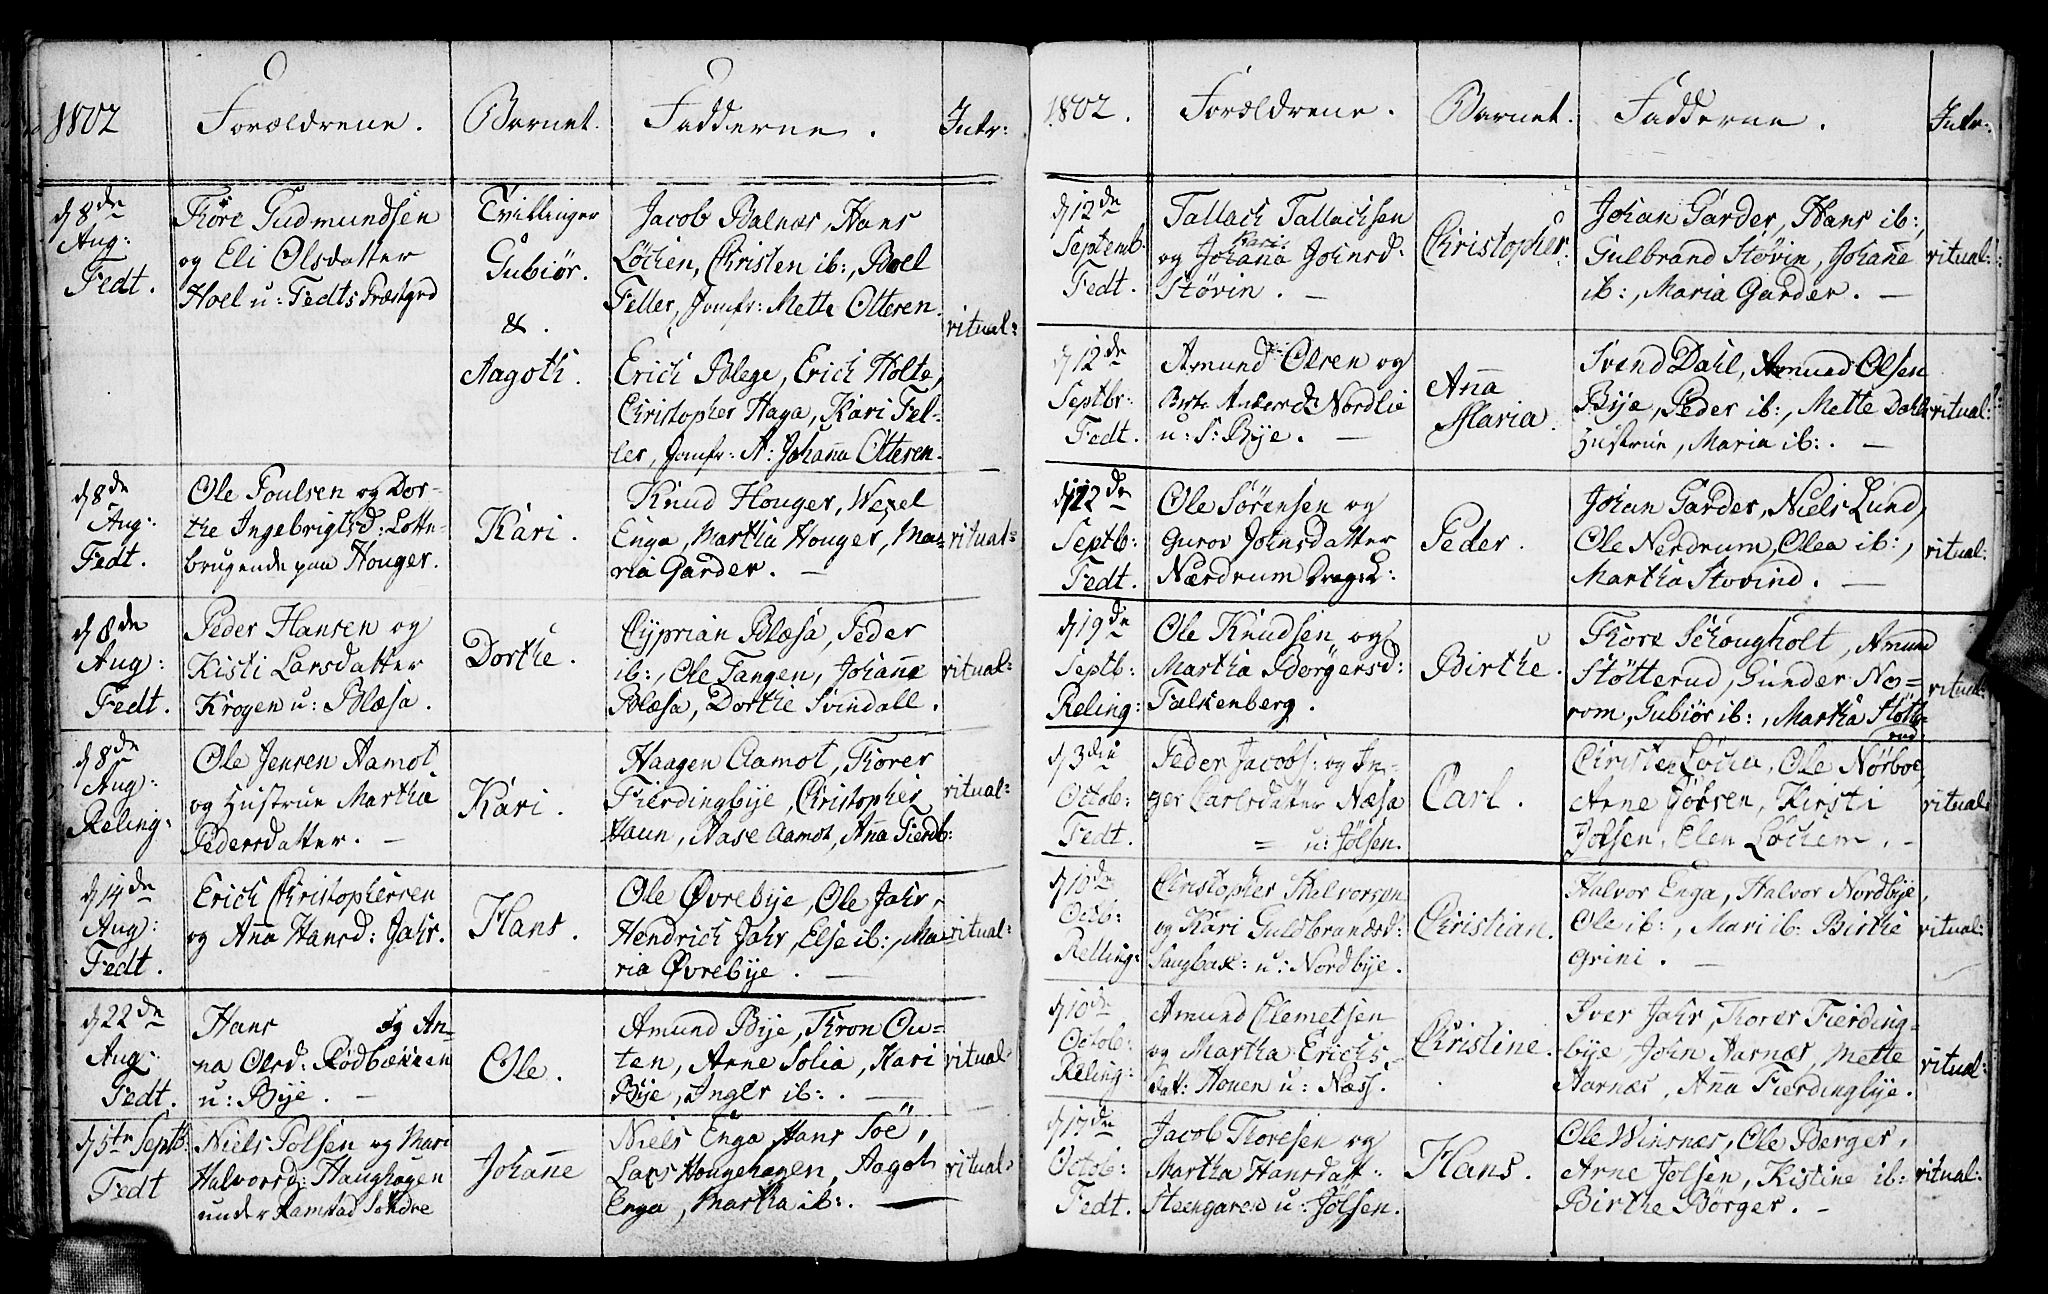 1802
Forældrene.
Barnet.
Fadderne.
Intr:
d 8de
Aug:
Fedt.
Thore Gudmundsen
og Eli Olsdatter
Hoel u: Fedts Præstgrd
Tvillinger
Gubiør.
&.
Aagoth.
Jacob Balnæs, Hans
Løchen, Christen ib:, Boel
Feller, Jomfr: Mette Otteren.
Erich Blege, Erich Holte,
Christopher Haga, Kari Fel-
ler, Jomfr: A: Johanna Otteren.
ritual:
d 8de
Aug:
Fedt.
Ole Poulsen og Dor-
the Ingebrigtsd: Lotte-
brugende paa Houger.
Kari.
Knud Houger, Wexel
Enga, Martha Houger, Ma-
ria Garder. —
ritual:
d 8de
Aug:
Fedt.
Peder Hansen og
Kisti Larsdatter
Krogen u: Blæsa.
Dorthe.
Cyprian Blæsa, Peder
ib:, Ole Tangen, Johanne
Blæsa, Dorthe Svindall.
ritual:
d 8de
Aug:
Reling:
Ole Jensen Aamot
og Hustrue Martha
Pedersdatter. —
Kari.
Haagen Aamot, Thorer
Fierdingbye, Christopher
Haun, Aase Aamot, Anna Fierdb:
ritual:
d 14de
Aug:
Fedt.
Erich Christophersen
og Anna Hansd: Jahr.
Hans.
Ole Øvrebye, Ole Jahr,
Hendrich Jahr, Else ib:, Ma
ria Øvrebye. —
ritual:
d 22de
Aug:
Fedt.
Hans og An-
na Olsd: Rødbækken
u: Bye. —
Ole.
Amund Bye, Thron Ou-
ten, Arne Solia, Kari
Bye, Inger ib:. —
ritual:
d 5te Septb:
Fedt
Niels Polsen og Mari
Halvorsd: Haughagen
under Ramstad Søndre
Johanne
Niels Enga, Hans Söe,
Lars Hougehagen, Aagoth
Enga, Martha ib:. —
ritual:
1802.
Forældrene.
Barnet.
Fadderne.
Intr:
d 12de
Septemb:
Fedt.
Tallach Tallachsen
Kari
og Johana Johnsd:
Støvin. —
Christopher.
Johan Garder, Hans ib:,
Gulbrand Støvin, Johane
ib:, Maria Garder. —
ritual:
d 12de
Septbr:
Fedt.
Amund Olsen og
Berte Andersd: Nordlie
u: S: Bye. —
Anna
Maria.
Svend Dahl, Amund Olsen
Bye, Peder ib:, Mette Dahls
Hustrue, Maria ib:. —
ritual:
d 12de
Septb:
Fedt.
Ole Sørensen og
Guroe Johnsdatter
Nærdrum
Peder.
Johan Garder, Niels Lund,
Ole Nerdrum, Olea ib:,
Martha Stovind. —
ritual:
d 19de
Septb:
Reling:
Ole Knudsen og
Martha Børgersd:
Falkenberg.
Birthe.
Thore Schougholt, Amund
Støtterud, Gunder No-
rom, Gubiør ib:, Martha Støtte-
rud
ritual:
d 3die
Octob:
Fedt.
Peder Jacobs: og In-
ger Carlsdatter Næsa
= u: Jølsen.
Carl.
Christen Løchen, Ole Nørboe,
Arne Jølsen, Kirsti
Jølsen, Elen Løchem. —
ritual:
d 10de
Octb:
Relling:
Christopher Halvorsen
og Kari Guldbrandsd:
u: Nordbye.
Christian.
Halvor Enga, Halvor Nordbye,
Ole ib:, Mari ib: Birthe
Grini. —
ritual:
d 10de
Octob:
Reling:
Amund Clemetsen
og Martha Erichs-
datt: Houen u: Næss.
Christine.
Iver Jahr, Thorer Fierding-
bye, John Aarnæs, Mette
Aarnæs, Anna Fierdingbye.
ritual:
d 17den
Octob:
Fedt.
Jacob Thoresen og
Martha Hansdatt:
Steengaresd u: Jølsen.
Hans.
Ole Winsnæs, Ole Berger,
Arne Jølsen, Kistine ib:
Birthe Børger. —
ritual: